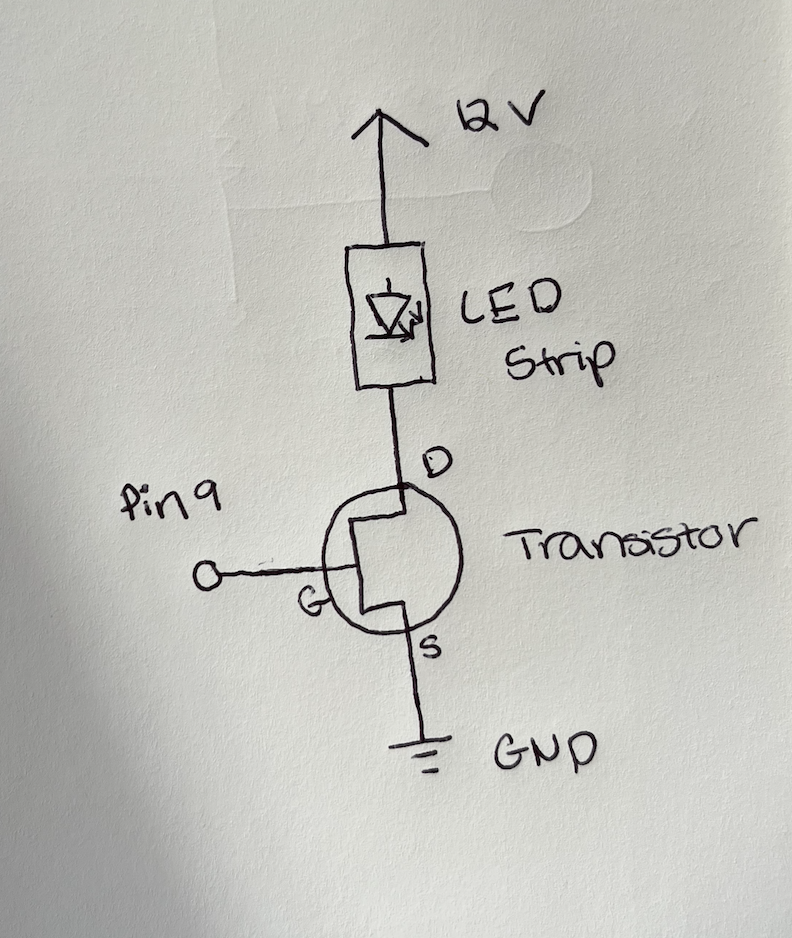 12 V
LED
Strip
D
Pin 9
Transistor
G
S
GND